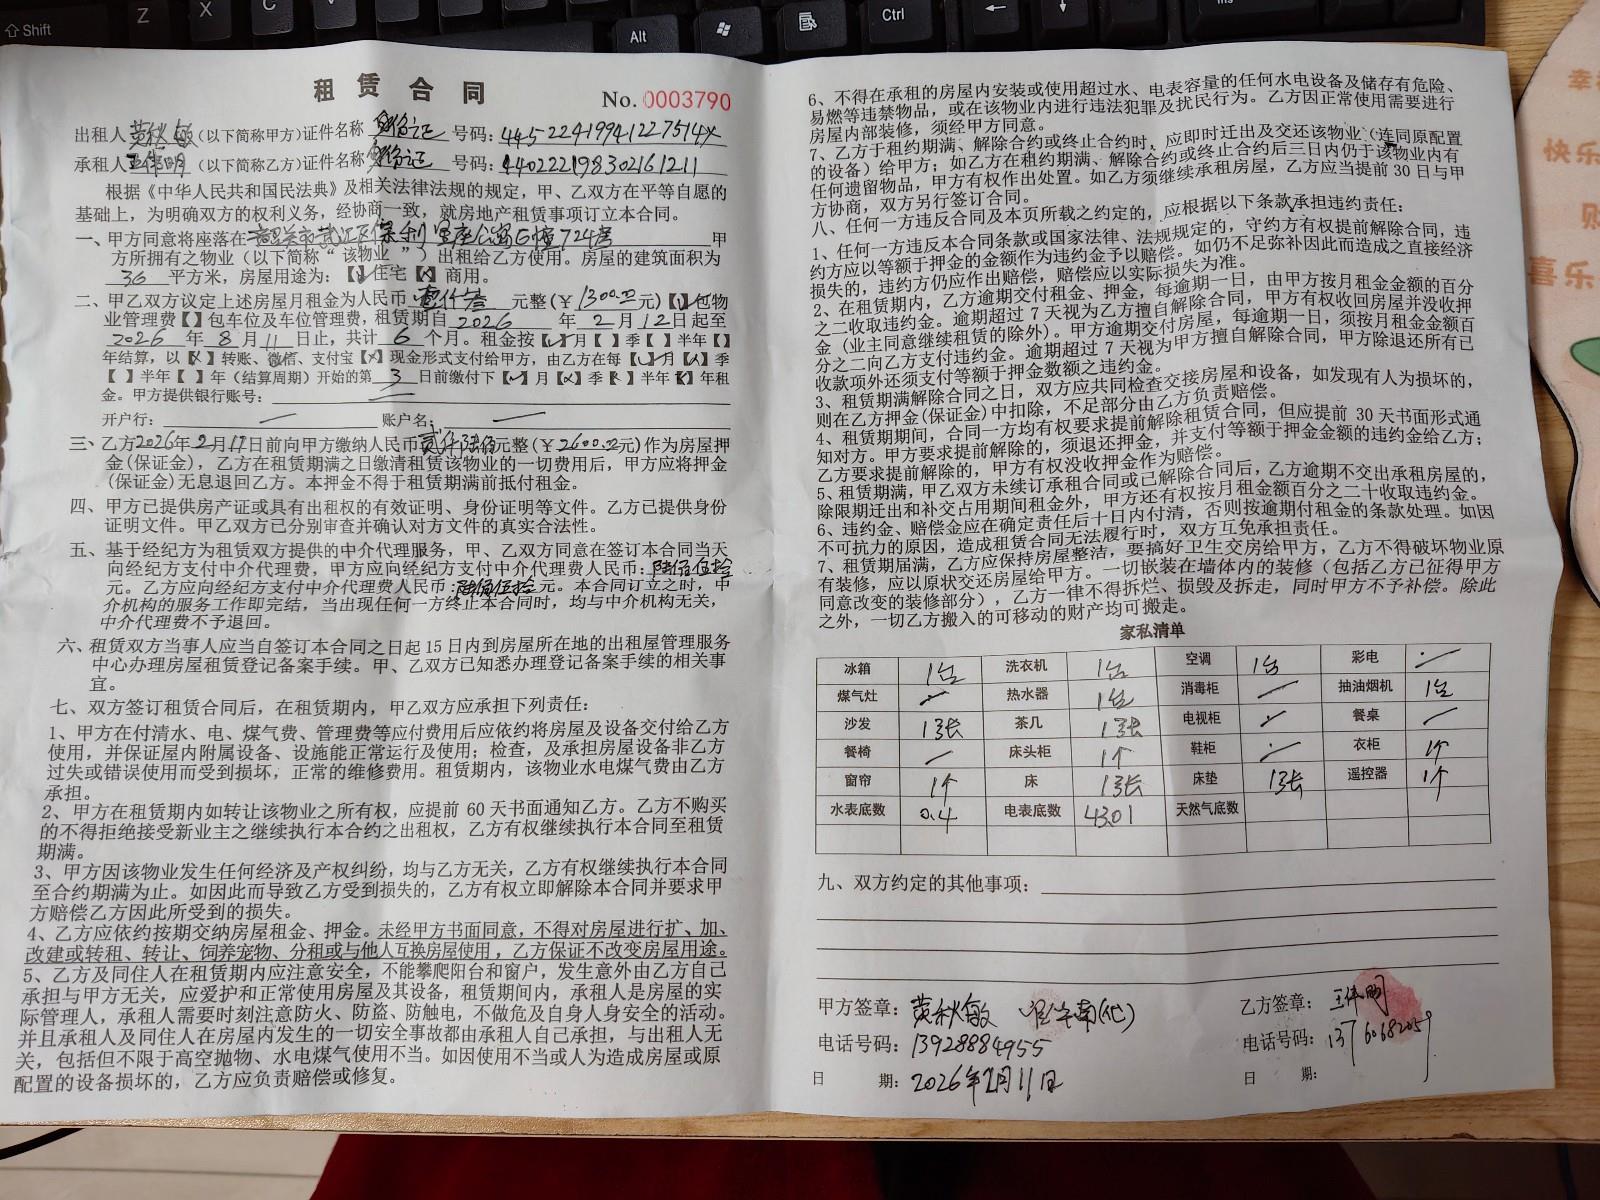 Shift
Z
X
C
Alt
Ctrl
租 赁 合 同
No. 0003790
出租人 黄秋敏 (以下简称甲方)证件名称 身份证 号码: 44522419941227514X
承租人 王伟明 (以下简称乙方)证件名称 身份证 号码: 440222198302161211
根据《中华人民共和国民法典》及相关法律法规的规定，甲、乙双方在平等自愿的
基础上，为明确双方的权利义务，经协商一致，就房地产租赁事项订立本合同。
一、甲方同意将座落在 韶关市武江区保利 公寓 幢724房 甲
方所拥有之物业（以下简称“该物业”）出租给乙方使用。房屋的建筑面积为
36 平方米，房屋用途为：【】住宅【】商用。
二、甲乙双方议定上述房屋月租金为人民币 壹仟叁 元整(￥1300.00元)【】包物
业管理费【】包车位及车位管理费，租赁期自 2026 年 2 月 12 日起至
2026 年 8 月 11 日止，共计 6 个月。租金按【✓】月【】季【】半年【】
年结算，以【X】转账、微信、支付宝【X】现金形式支付给甲方，由乙方在每【✓】月【】季
【】半年【】年（结算周期）开始的第 3 日前缴付下【✓】月【X】季【】半年【】年租
金。甲方提供银行账号：
开户行： 账户名：
三、乙方2026年2月11日前向甲方缴纳人民币 贰仟陆佰元整(￥2600.00元)作为房屋押
金(保证金)，乙方在租赁期满之日缴清租赁该物业的一切费用后，甲方应将押金
(保证金)无息退回乙方。本押金不得于租赁期满前抵付租金。
四、甲方已提供房产证或具有出租权的有效证明、身份证明等文件。乙方已提供身份
证明文件。甲乙双方已分别审查并确认对方文件的真实合法性。
五、基于经纪方为租赁双方提供的中介代理服务，甲、乙双方同意在签订本合同当天
向经纪方支付中介代理费，甲方应向经纪方支付中介代理费人民币：陆佰伍拾
元。乙方应向经纪方支付中介代理费人民币：陆佰伍拾元。本合同订立之时，中
介机构的服务工作即完结，当出现任何一方终止本合同时，均与中介机构无关，
中介代理费不予退回。
六、租赁双方当事人应当自签订本合同之日起 15 日内到房屋所在地的出租屋管理服务
中心办理房屋租赁登记备案手续。甲、乙双方已知悉办理登记备案手续的相关事
宜。
七、双方签订租赁合同后，在租赁期内，甲乙双方应承担下列责任：
1、甲方在付清水、电、煤气费、管理费等应付费用后应依约将房屋及设备交付给乙方
使用，并保证屋内附属设备、设施能正常运行及使用；检查，及承担房屋设备非乙方
过失或错误使用而受到损坏，正常的维修费用。租赁期内，该物业水电煤气费由乙方
承担。
2、甲方在租赁期内如转让该物业之所有权，应提前 60 天书面通知乙方。乙方不购买
的不得拒绝接受新业主之继续执行本合约之出租权，乙方有权继续执行本合同至租赁
期满。
3、甲方因该物业发生任何经济及产权纠纷，均与乙方无关，乙方有权继续执行本合同
至合约期满为止。如因此而导致乙方受到损失的，乙方有权立即解除本合同并要求甲
方赔偿乙方因此所受到的损失。
4、乙方应依约按期交纳房屋租金、押金。未经甲方书面同意，不得对房屋进行扩、加、
改建或转租、转让、饲养宠物、分租或与他人互换房屋使用，乙方保证不改变房屋用途。
5、乙方及同住人在租赁期内应注意安全，不能攀爬阳台和窗户，发生意外由乙方自己
承担与甲方无关，应爱护和正常使用房屋及其设备，租赁期间内，承租人是房屋的实
际管理人，承租人需要时刻注意防火、防盗、防触电，不做危及自身人身安全的活动。
并且承租人及同住人在房屋内发生的一切安全事故都由承租人自己承担，与出租人无
关，包括但不限于高空抛物、水电煤气使用不当。如因使用不当或人为造成房屋或原
配置的设备损坏的，乙方应负责赔偿或修复。
6、不得在承租的房屋内安装或使用超过水、电表容量的任何水电设备及储存有危险、
易燃等违禁物品，或在该物业内进行违法犯罪及扰民行为。乙方因正常使用需要进行
房屋内部装修，须经甲方同意。
7、乙方于租约期满、解除合约或终止合约时，应即时迁出及交还该物业（连同原配置
的设备）给甲方；如乙方在租约期满、解除合约或终止合约后三日内仍于该物业内有
任何遗留物品，甲方有权作出处置。如乙方须继续承租房屋，乙方应当提前 30 日与甲
方协商，双方另行签订合同。
八、任何一方违反合同及本页所载之约定的，应根据以下条款承担违约责任：
1、任何一方违反本合同条款或国家法律、法规规定的，守约方有权提前解除合同，违
约方应以等额于押金的金额作为违约金予以赔偿。如仍不足弥补因此而造成之直接经济
损失的，违约方仍应作出赔偿，赔偿应以实际损失为准。
2、在租赁期内，乙方逾期交付租金、押金，每逾期一日，由甲方按月租金金额的百分
之二收取违约金。逾期超过 7 天视为乙方擅自解除合同，甲方有权收回房屋并没收押
金（业主同意继续租赁的除外）。甲方逾期交付房屋，每逾期一日，须按月租金金额百
分之二向乙方支付违约金。逾期超过 7 天视为甲方擅自解除合同，甲方除退还所有已
收款项外还须支付等额于押金数额之违约金。
3、租赁期满解除合同之日，双方应共同检查交接房屋和设备，如发现有人为损坏的，
则在乙方押金(保证金)中扣除，不足部分由乙方负责赔偿。
4、租赁期期间，合同一方均有权要求提前解除租赁合同，但应提前 30 天书面形式通
知对方。甲方要求提前解除的，须退还押金，并支付等额于押金金额的违约金给乙方；
乙方要求提前解除的，甲方有权没收押金作为赔偿。
5、租赁期满，甲乙双方未续订承租合同或已解除合同后，乙方逾期不交出承租房屋的，
除限期迁出和补交占用期间租金外，甲方还有权按月租金额百分之二十收取违约金。
6、违约金、赔偿金应在确定责任后十日内付清，否则按逾期付租金的条款处理。如因
不可抗力的原因，造成租赁合同无法履行时，双方互免承担责任。
7、租赁届满，乙方应保持房屋整洁，要搞好卫生交房给甲方，乙方不得破坏物业原
有装修，应以原状交还房屋给甲方。一切嵌装在墙体内的装修（包括乙方已征得甲方
同意改变的装修部分），乙方一律不得拆烂、损毁及拆走，同时甲方不予补偿。除此
之外，一切乙方搬入的可移动的财产均可搬走。
家私清单
冰箱 1台 洗衣机 1台 空调 1台 彩电
煤气灶 热水器 1台 消毒柜 抽油烟机 1台
沙发 1张 茶几 1张 电视柜 餐桌
餐椅 床头柜 1个 鞋柜 衣柜 1个
窗帘 1个 床 1张 床垫 1张 遥控器 1个
水表底数 0.4 电表底数 4301 天然气底数
九、双方约定的其他事项：
甲方签章：黄秋敏 (代) 乙方签章：王伟明
电话号码：13928884955 电话号码：13760682059
日 期：2026年2月11日 日 期：
幸
快乐
财
喜乐